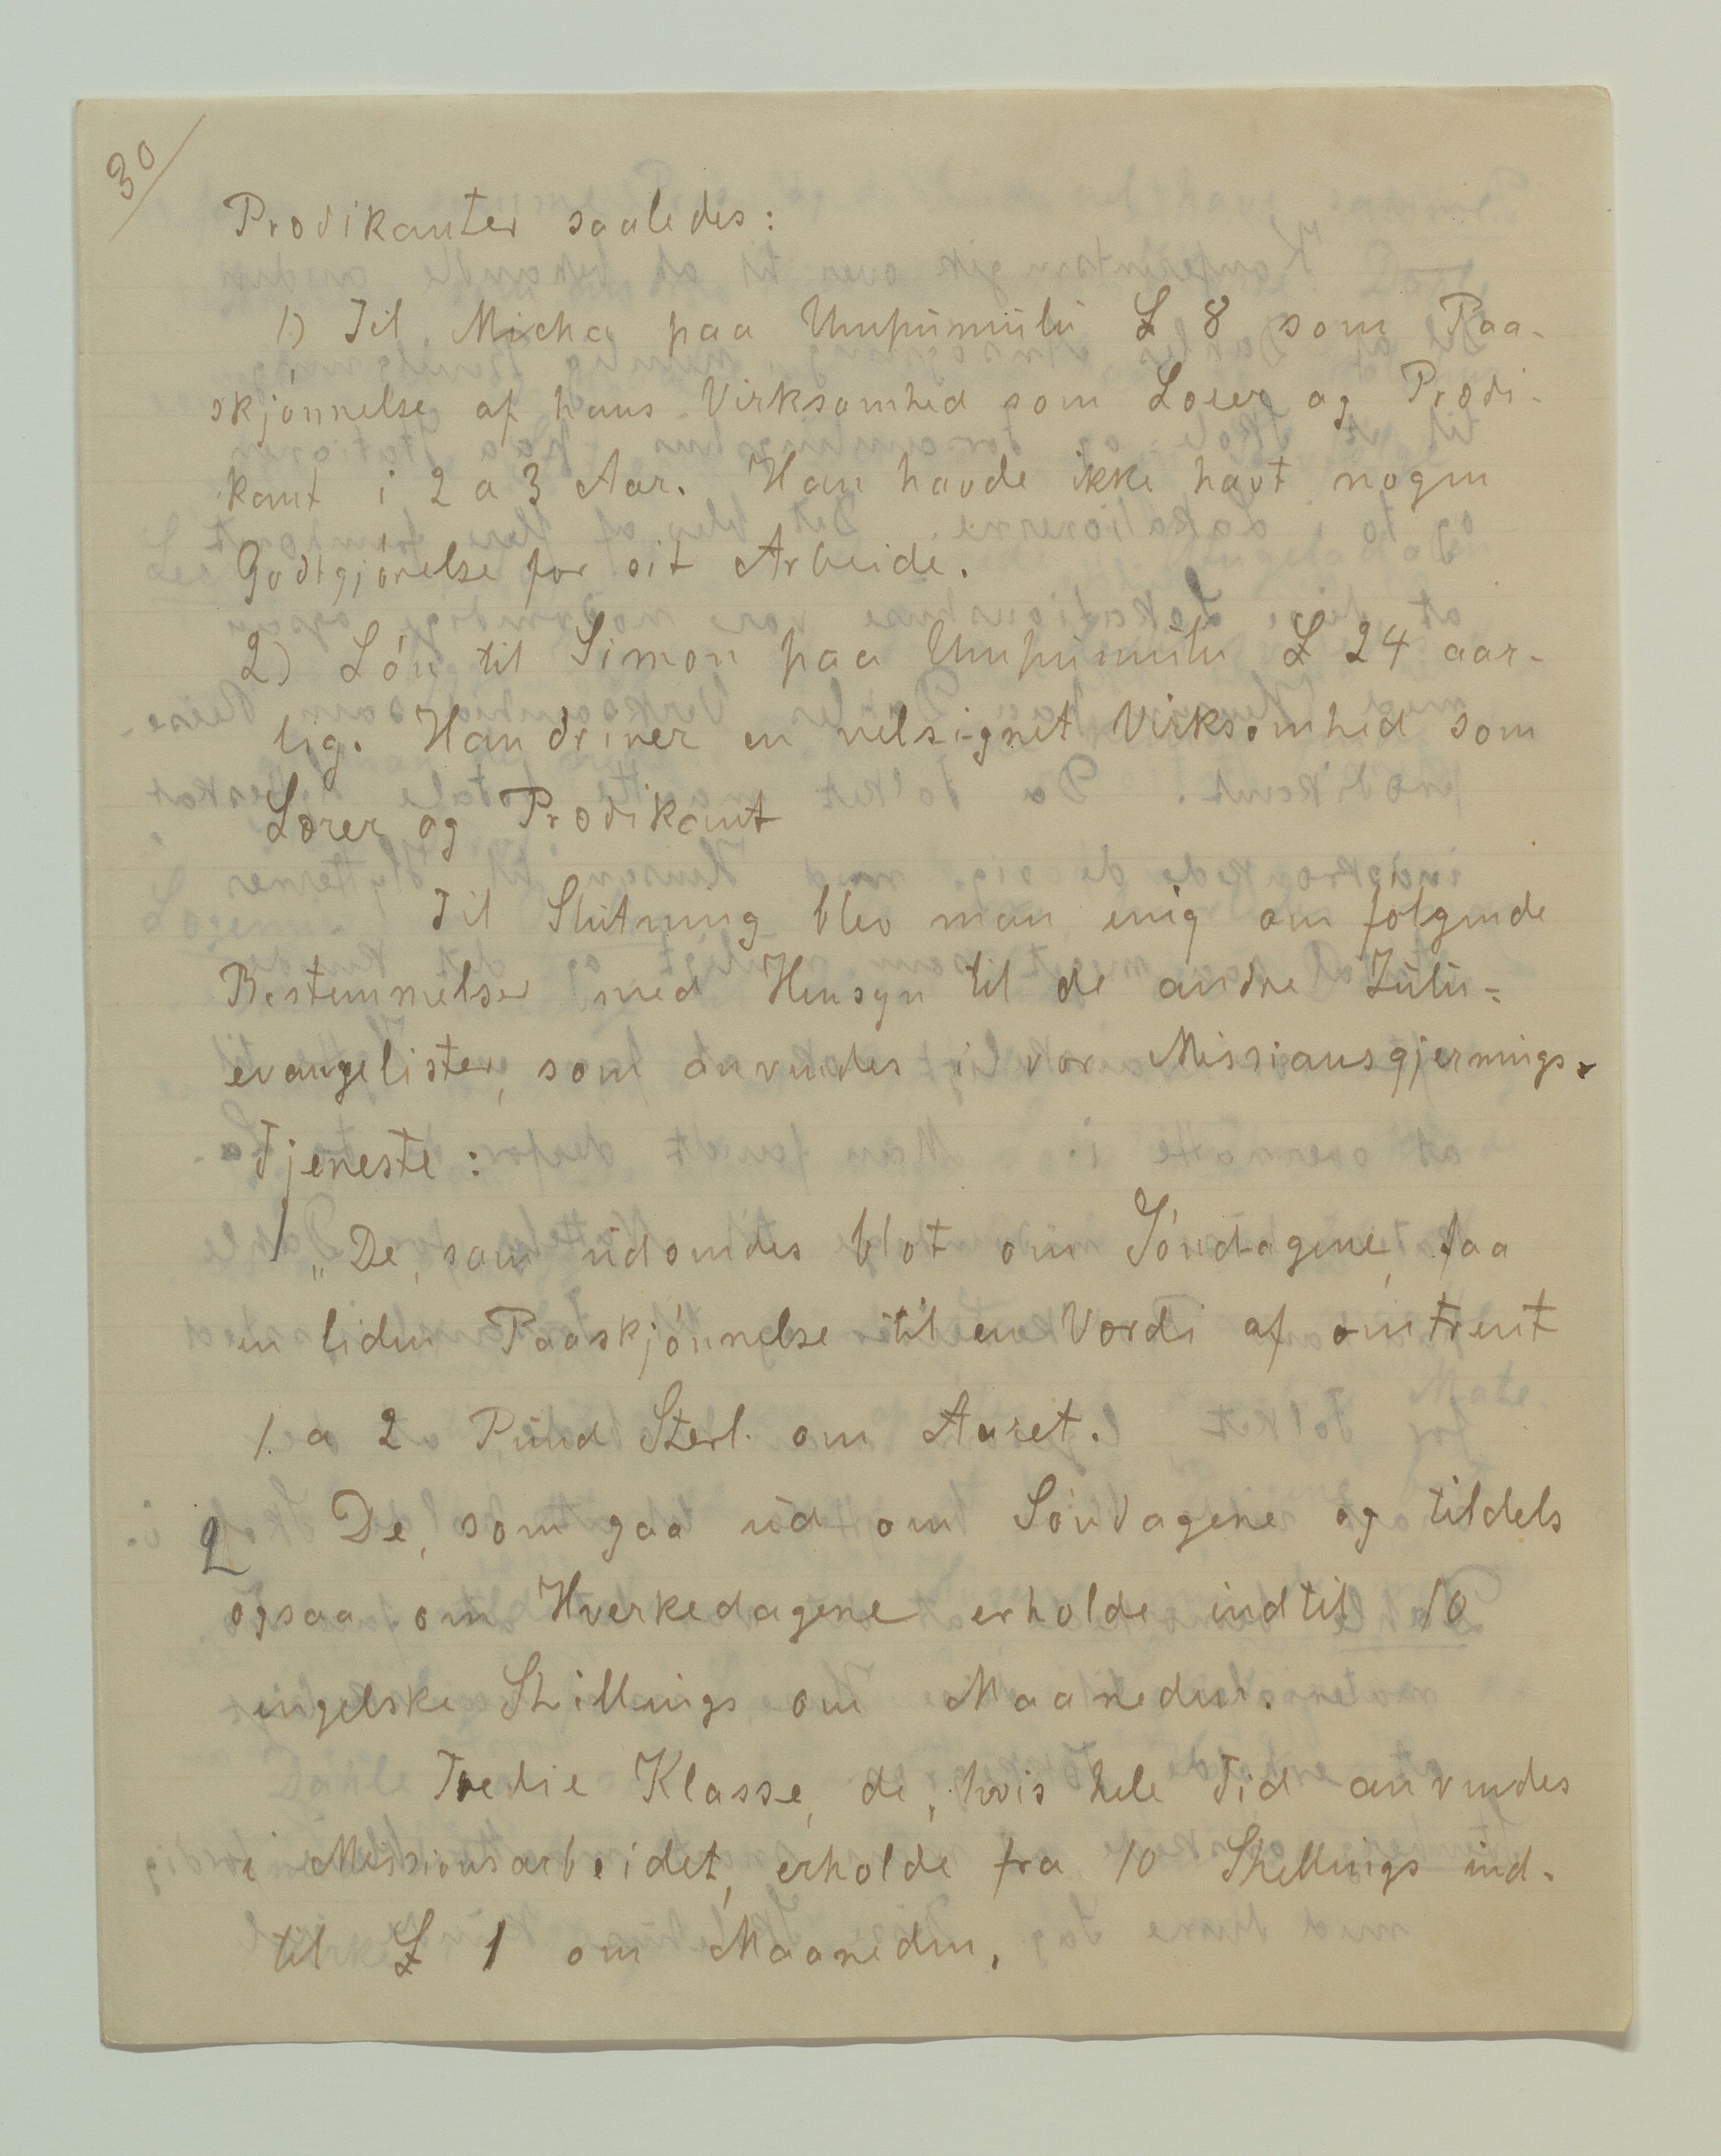 30
Prædikanter saaledes:
1) Til Micha paa Umpumulu £ 8 som Paa-
skjønnelse af hans Virksomhed som Lærer og Prædi-
kant i 2 a 3 Aar. Han havde ikke havt nogen
Godtgjørelse for sit Arbeide.
2) Løn til Simon paa Umpumulu £ 24 aar-
lig. Han driver en velsignet Virksomhed som
Lærer og Prædikant
Til Slutning blev man enig om følgende
Bestemmelser med Hensyn til de andre Zulu-
evangelister, som anvendes i vor Missionsgjernings
Tjeneste:
1 „De, som udsendes blot om Søndagene, faa
en liden Paaskjønnelse til en Værdi af omtrent
1 a 2 Pund Sterl. om Aaret.
2 De, som gaa ud om Søndagene og tildels
ogsaa om Hverkedagene erholde indtil 10
engelske Shillings om Maaneden.
Tredie Klasse, de, hvis hele Tid anvendes
i Missionsarbeidet, erholde fra 10 Shillings ind-
til £ 1 om Maaneden.